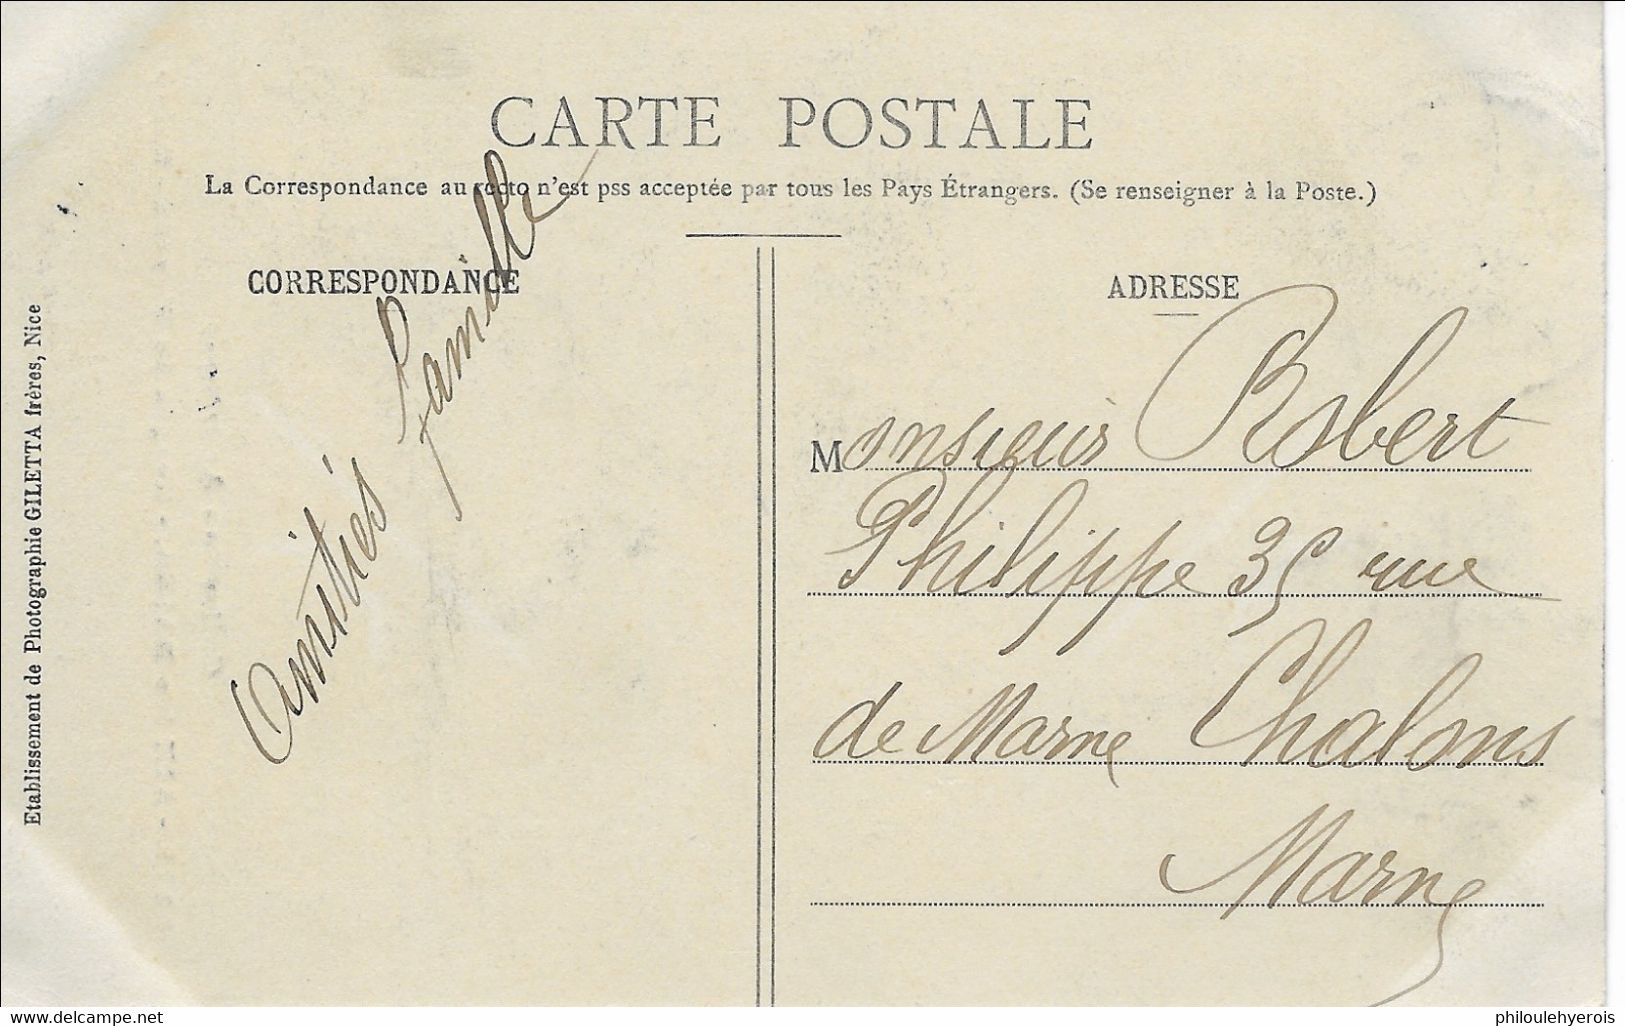 CARTE POSTALE
La Correspondance au recto n'est pss acceptée par tous les Pays Étrangers. (Se renseigner à la Poste.)
CORRESPONDANCE
Amitiés famille
ADRESSE
Monsieur Robert
Philippe 35 rue
de Marne Chalons
Marne
Etablissement de Photographie GILETTA frères, Nice
www.delcampe.net
philoulehyerois